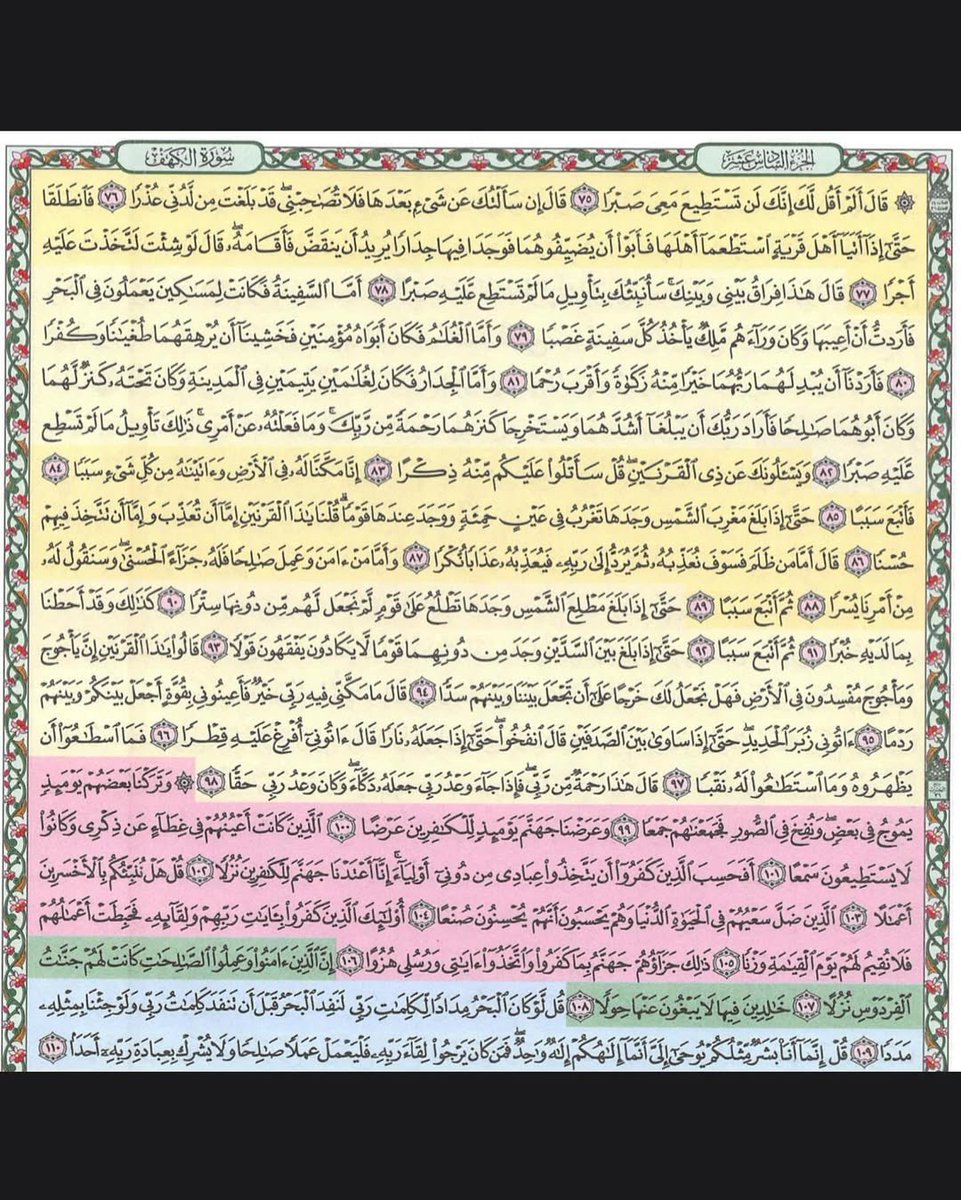 الجزء السادس عشر
سورة الكهف
۞ قَالَ أَلَمْ أَقُل لَّكَ إِنَّكَ لَن تَسْتَطِيعَ مَعِيَ صَبْرًا ٧٥ قَالَ إِن سَأَلْتُكَ عَن شَيْءٍ بَعْدَهَا فَلَا تُصَٰحِبْنِي ۖ قَدْ بَلَغْتَ مِن لَّدُنِّي عُذْرًا ٧٦ فَٱنطَلَقَا
حَتَّىٰٓ إِذَآ أَتَيَآ أَهْلَ قَرْيَةٍ ٱسْتَطْعَمَآ أَهْلَهَا فَأَبَوْا۟ أَن يُضَيِّفُوهُمَا فَوَجَدَا فِيهَا جِدَارًا يُرِيدُ أَن يَنقَضَّ فَأَقَامَهُۥ ۖ قَالَ لَوْ شِئْتَ لَتَّخَذْتَ عَلَيْهِ
أَجْرًا ٧٧ قَالَ هَٰذَا فِرَاقُ بَيْنِي وَبَيْنِكَ ۚ سَأُنَبِّئُكَ بِتَأْوِيلِ مَا لَمْ تَسْتَطِع عَّلَيْهِ صَبْرًا ٧٨ أَمَّا ٱلسَّفِينَةُ فَكَانَتْ لِمَسَٰكِينَ يَعْمَلُونَ فِي ٱلْبَحْرِ
فَأَرَدتُّ أَنْ أَعِيبَهَا وَكَانَ وَرَآءَهُم مَّلِكٌ يَأْخُذُ كُلَّ سَفِينَةٍ غَصْبًا ٧٩ وَأَمَّا ٱلْغُلَٰمُ فَكَانَ أَبَوَاهُ مُؤْمِنَيْنِ فَخَشِينَآ أَن يُرْهِقَهُمَا طُغْيَٰنًا وَكُفْرًا
٨٠ فَأَرَدْنَآ أَن يُبْدِلَهُمَا رَبُّهُمَا خَيْرًا مِّنْهُ زَكَوٰةً وَأَقْرَبَ رُحْمًا ٨١ وَأَمَّا ٱلْجِدَارُ فَكَانَ لِغُلَٰمَيْنِ يَتِيمَيْنِ فِي ٱلْمَدِينَةِ وَكَانَ تَحْتَهُۥ كَنزٌ لَّهُمَا
وَكَانَ أَبُوهُمَا صَٰلِحًا فَأَرَادَ رَبُّكَ أَن يَبْلُغَآ أَشُدَّهُمَا وَيَسْتَخْرِجَا كَنزَهُمَا رَحْمَةً مِّن رَّبِّكَ ۚ وَمَا فَعَلْتُهُۥ عَنْ أَمْرِي ۚ ذَٰلِكَ تَأْوِيلُ مَا لَمْ تَسْطِع
عَّلَيْهِ صَبْرًا ٨٢ وَيَسْـَٔلُونَكَ عَن ذِي ٱلْقَرْنَيْنِ ۖ قُلْ سَأَتْلُوا۟ عَلَيْكُم مِّنْهُ ذِكْرًا ٨٣ إِنَّا مَكَّنَّا لَهُۥ فِي ٱلْأَرْضِ وَءَاتَيْنَٰهُ مِن كُلِّ شَيْءٍ سَبَبًا ٨٤
فَأَتْبَعَ سَبَبًا ٨٥ حَتَّىٰٓ إِذَا بَلَغَ مَغْرِبَ ٱلشَّمْسِ وَجَدَهَا تَغْرُبُ فِي عَيْنٍ حَمِئَةٍ وَوَجَدَ عِندَهَا قَوْمًا ۗ قُلْنَا يَٰذَا ٱلْقَرْنَيْنِ إِمَّآ أَن تُعَذِّبَ وَإِمَّآ أَن تَتَّخِذَ فِيهِمْ
حُسْنًا ٨٦ قَالَ أَمَّا مَن ظَلَمَ فَسَوْفَ نُعَذِّبُهُۥ ثُمَّ يُرَدُّ إِلَىٰ رَبِّهِۦ فَيُعَذِّبُهُۥ عَذَابًا نُّكْرًا ٨٧ وَأَمَّا مَنْ ءَامَنَ وَعَمِلَ صَٰلِحًا فَلَهُۥ جَزَآءً ٱلْحُسْنَىٰ ۖ وَسَنَقُولُ لَهُۥ
مِنْ أَمْرِنَا يُسْرًا ٨٨ ثُمَّ أَتْبَعَ سَبَبًا ٨٩ حَتَّىٰٓ إِذَا بَلَغَ مَطْلِعَ ٱلشَّمْسِ وَجَدَهَا تَطْلُعُ عَلَىٰ قَوْمٍ لَّمْ نَجْعَل لَّهُم مِّن دُونِهَا سِتْرًا ٩٠ كَذَٰلِكَ وَقَدْ أَحَطْنَا
بِمَا لَدَيْهِ خُبْرًا ٩١ ثُمَّ أَتْبَعَ سَبَبًا ٩٢ حَتَّىٰٓ إِذَا بَلَغَ بَيْنَ ٱلسَّدَّيْنِ وَجَدَ مِن دُونِهِمَا قَوْمًا لَّا يَكَادُونَ يَفْقَهُونَ قَوْلًا ٩٣ قَالُوا۟ يَٰذَا ٱلْقَرْنَيْنِ إِنَّ يَأْجُوجَ
وَمَأْجُوجَ مُفْسِدُونَ فِي ٱلْأَرْضِ فَهَلْ نَجْعَلُ لَكَ خَرْجًا عَلَىٰٓ أَن تَجْعَلَ بَيْنَنَا وَبَيْنَهُمْ سَدًّا ٩٤ قَالَ مَا مَكَّنِّي فِيهِ رَبِّي خَيْرٌ فَأَعِينُونِي بِقُوَّةٍ أَجْعَلْ بَيْنَكُمْ وَبَيْنَهُمْ
رَدْمًا ٩٥ ءَاتُونِي زُبَرَ ٱلْحَدِيدِ ۖ حَتَّىٰٓ إِذَا سَاوَىٰ بَيْنَ ٱلصَّدَفَيْنِ قَالَ ٱنفُخُوا۟ ۖ حَتَّىٰٓ إِذَا جَعَلَهُۥ نَارًا قَالَ ءَاتُونِيٓ أُفْرِغْ عَلَيْهِ قِطْرًا ٩٦ فَمَا ٱسْطَٰعُوٓا۟ أَن
يَظْهَرُوهُ وَمَا ٱسْتَطَٰعُوا۟ لَهُۥ نَقْبًا ٩٧ قَالَ هَٰذَا رَحْمَةٌ مِّن رَّبِّي ۖ فَإِذَا جَآءَ وَعْدُ رَبِّي جَعَلَهُۥ دَكَّآءَ ۖ وَكَانَ وَعْدُ رَبِّي حَقًّا ٩٨ ۞ وَتَرَكْنَا بَعْضَهُمْ يَوْمَئِذٍ
يَمُوجُ فِي بَعْضٍ ۖ وَنُفِخَ فِي ٱلصُّورِ فَجَمَعْنَٰهُمْ جَمْعًا ٩٩ وَعَرَضْنَا جَهَنَّمَ يَوْمَئِذٍ لِّلْكَٰفِرِينَ عَرْضًا ١٠٠ ٱلَّذِينَ كَانَتْ أَعْيُنُهُمْ فِي غِطَآءٍ عَن ذِكْرِي وَكَانُوا۟
لَا يَسْتَطِيعُونَ سَمْعًا ١٠١ أَفَحَسِبَ ٱلَّذِينَ كَفَرُوٓا۟ أَن يَتَّخِذُوا۟ عِبَادِي مِن دُونِيٓ أَوْلِيَآءَ ۚ إِنَّآ أَعْتَدْنَا جَهَنَّمَ لِلْكَٰفِرِينَ نُزُلًا ١٠٢ قُلْ هَلْ نُنَبِّئُكُم بِٱلْأَخْسَرِينَ
أَعْمَٰلًا ١٠٣ ٱلَّذِينَ ضَلَّ سَعْيُهُمْ فِي ٱلْحَيَوٰةِ ٱلدُّنْيَا وَهُمْ يَحْسَبُونَ أَنَّهُمْ يُحْسِنُونَ صُنْعًا ١٠٤ أُو۟لَٰٓئِكَ ٱلَّذِينَ كَفَرُوا۟ بِـَٔايَٰتِ رَبِّهِمْ وَلِقَآئِهِۦ فَحَبِطَتْ أَعْمَٰلُهُمْ
فَلَا نُقِيمُ لَهُمْ يَوْمَ ٱلْقِيَٰمَةِ وَزْنًا ١٠٥ ذَٰلِكَ جَزَآؤُهُمْ جَهَنَّمُ بِمَا كَفَرُوا۟ وَٱتَّخَذُوٓا۟ ءَايَٰتِي وَرُسُلِي هُزُوًا ١٠٦ إِنَّ ٱلَّذِينَ ءَامَنُوا۟ وَعَمِلُوا۟ ٱلصَّٰلِحَٰتِ كَانَتْ لَهُمْ جَنَّٰتُ
ٱلْفِرْدَوْسِ نُزُلًا ١٠٧ خَٰلِدِينَ فِيهَا لَا يَبْغُونَ عَنْهَا حِوَلًا ١٠٨ قُل لَّوْ كَانَ ٱلْبَحْرُ مِدَادًا لِّكَلِمَٰتِ رَبِّي لَنَفِدَ ٱلْبَحْرُ قَبْلَ أَن تَنفَدَ كَلِمَٰتُ رَبِّي وَلَوْ جِئْنَا بِمِثْلِهِۦ
مَدَدًا ١٠٩ قُلْ إِنَّمَآ أَنَا۠ بَشَرٌ مِّثْلُكُمْ يُوحَىٰٓ إِلَيَّ أَنَّمَآ إِلَٰهُكُمْ إِلَٰهٌ وَٰحِدٌ ۖ فَمَن كَانَ يَرْجُوا۟ لِقَآءَ رَبِّهِۦ فَلْيَعْمَلْ عَمَلًا صَٰلِحًا وَلَا يُشْرِكْ بِعِبَادَةِ رَبِّهِۦٓ أَحَدًۢا ١١٠